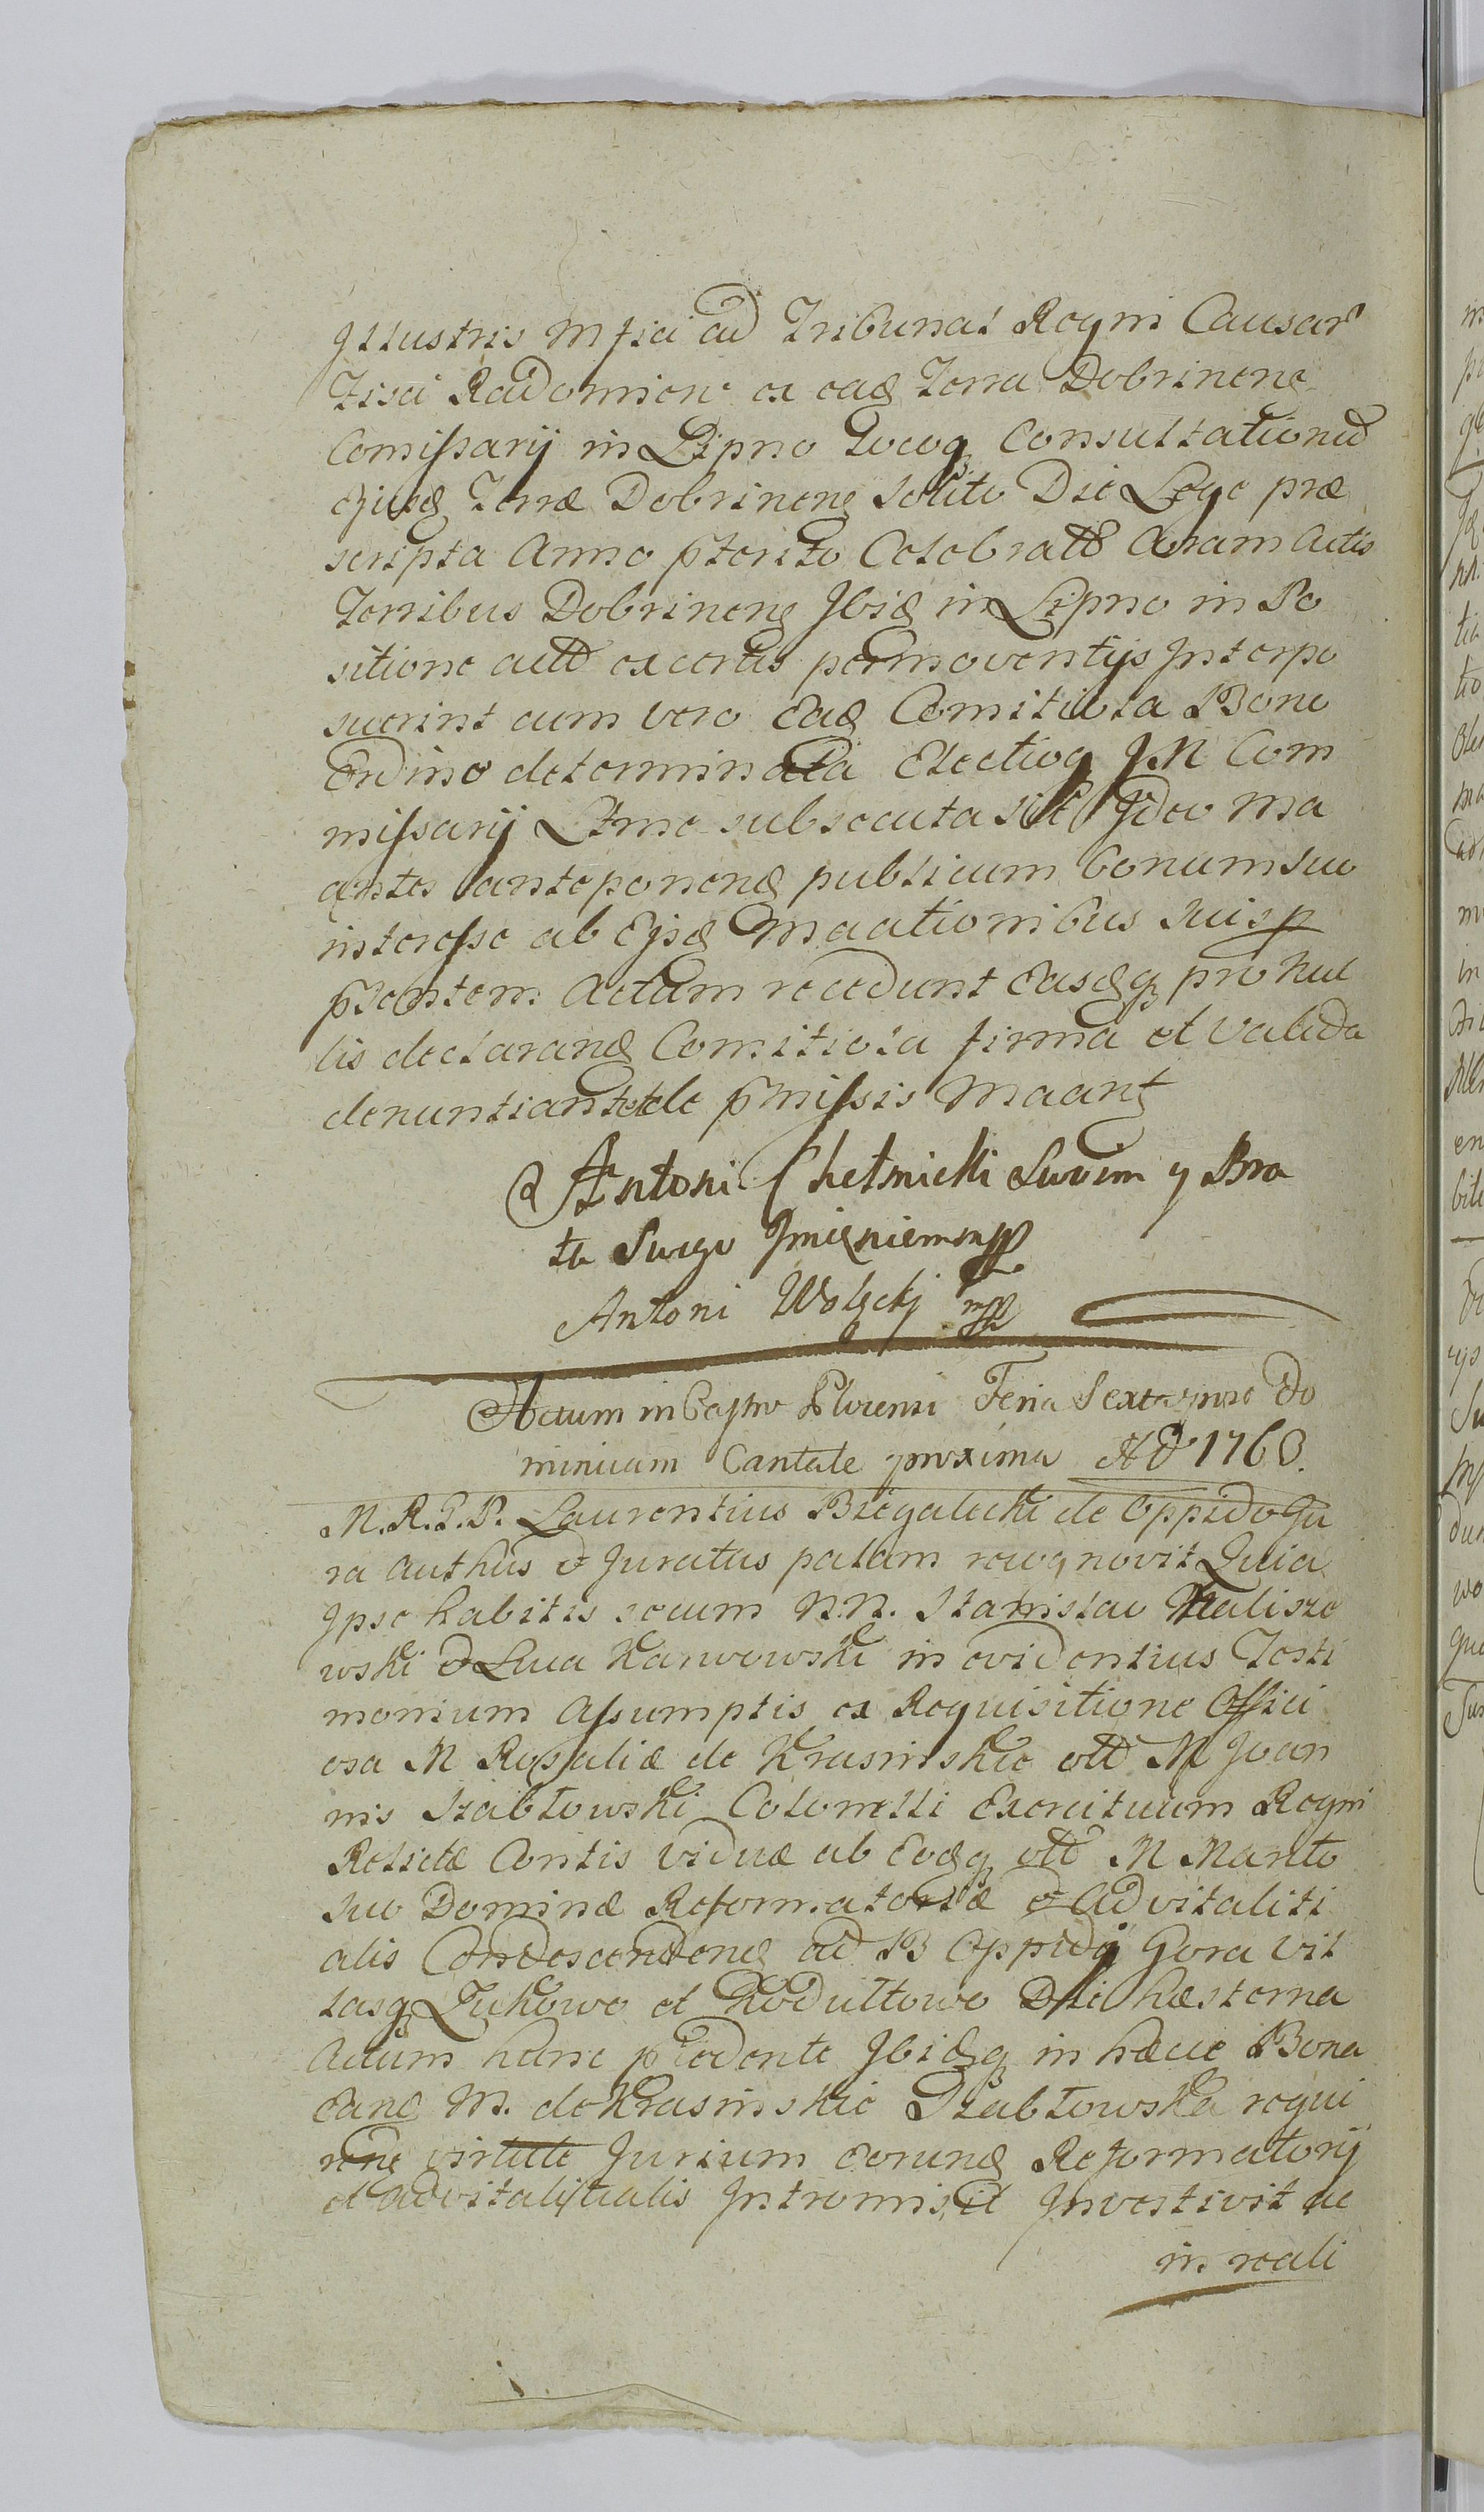 Illustris Mfici ad Tribunal Regni Causar
Fisci Radomien ex ead Terra Dobrinen
Comissarij in Lipno Locoq Consultationū
ejusd Terræ Dobrinens solito Die Lege præ
scripta Anno pterito Celebratæ Coram Actis
Terribus Dobrinens Ibid in Lipno in Po
sitione actæ ex certis permoventijs Interpo
suerint cum vero Ead Comitiola Bono
Ordine determinata Electioq IM Com
missarij Ltme subsecuta sit Ideo Ma
antes anteponend publicum bonum suo
interesse ab Ejsd Maationibus suis p
psentem Actum recedunt Easdq pro nul
lis declarand Comitiola firma et valida
denuntiant et de pmissis Maant
Antoni Chełmicki Swoim y Bra
ta Swego Imięniem mpp
Antoni Wolęckj mpp
Actum in Castro Plocensi Feria Sexta post Do
minicam Cantate proxima AD 1768.
M.R.G.P. Laurentius Biegalecki de Oppido Gu
ra Authus & Juratus palam recognovit Quia
Ipse habitis secum N.N. Stanislao Kaliszo
wski & Luca Karwowski in evidentius Testi
monium Assumptis ex Requisitione Offici
osa M Rosaliæ de Krasinskie olt M Joan
nis Szabłowski Colonelli Exercituum Regni
Relictæ Contis viduæ ab Eodq olt M Marito
suo Dominæ Reformatoriæ & Advitaliti
alis Condescendens ad B Oppidi Gora vil
lasq Łukowo et Kodułtowo Die hesterna
Actum hunc pcedente Ibidq in hæce Bona
eand M. de Krasinskie Szabłowska requi
rens virtute Jurium eorund Reformatorij
et advitalitialis Intromisit Investivit ac
in reali